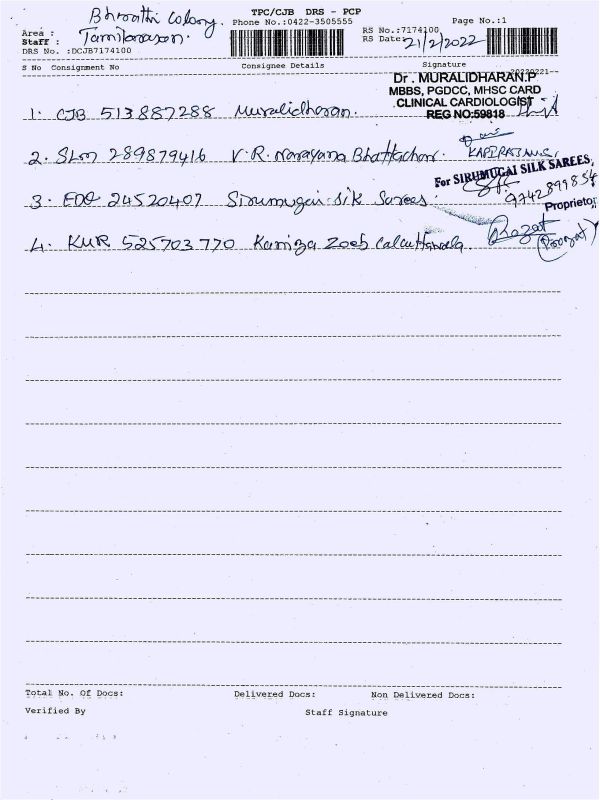 TPC/CJB DRS - PCP
Area : Bharathi colony. Phone No.:0422-3505555 Page No.:1
Staff : Tamilarasan. RS No.:7174100
DRS No. :DCJB7174100 RS Date: 21/2/2022
S No Consignment No Consignee Details Signature 20220221--
Dr . MURALIDHARAN.P
MBBS, PGDCC, MHSC CARD
CLINICAL CARDIOLOGIST
REG NO:59818
1. CJB 513887288 Muralidharan.
2. SLM 289879416 V.R. Narayana Bhattachari.
For SIRUMUGAI SILK SAREES,
3. EDO 24520407 Sirumugai silk Sarees. 9742899854
Proprietor
4. KUR 525703770 Zoeb Calcuttawala.
Total No. Of Docs: Delivered Docs: Non Delivered Docs:
Verified By Staff Signature